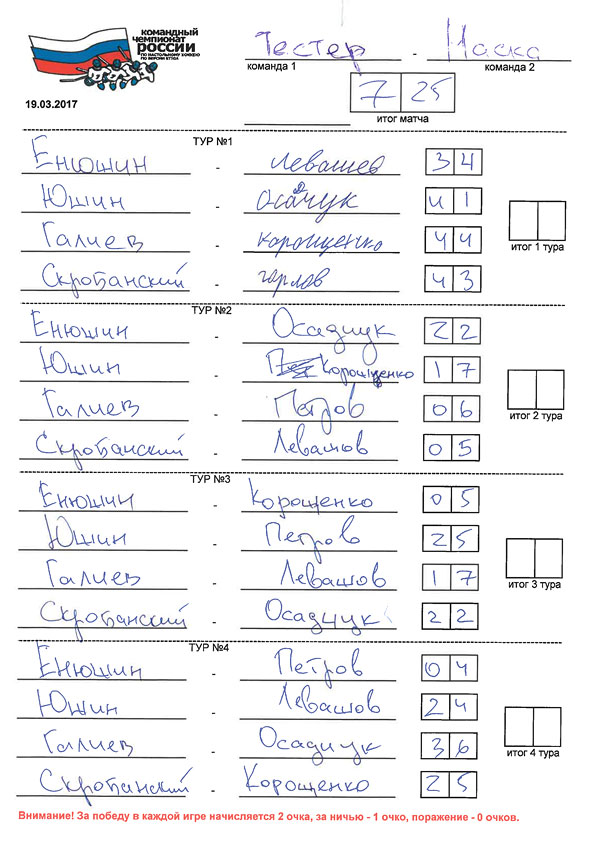 КОМАНДНЫЙ
ЧЕМПИОНАТ
РОССИИ
ПО НАСТОЛЬНОМУ ХОККЕЮ
ПО ВЕРСИИ
Тестер - Маска
команда 1 команда 2
7 25
19.03.2017
итог матча
ТУР №1
Енюшин - Левашев 3 4
Юшин - Осадчук 4 1
Галиев - Корощенко 4 4
Скробанский - Горлов 4 3
итог 1 тура
ТУР №2
Енюшин - Осадчук 2 2
Юшин - Корощенко 1 7
Галиев - Петров 0 6
Скробанский - Левашов 0 5
итог 2 тура
ТУР №3
Енюшин - Корощенко 0 5
Юшин - Петров 2 5
Галиев - Левашов 1 7
Скробанский - Осадчук 2 2
итог 3 тура
ТУР №4
Енюшин - Петров 0 4
Юшин - Левашов 2 4
Галиев - Осадчук 3 6
Скробанский - Корощенко 2 5
итог 4 тура
Внимание! За победу в каждой игре начисляется 2 очка, за ничью - 1 очко, поражение - 0 очков.